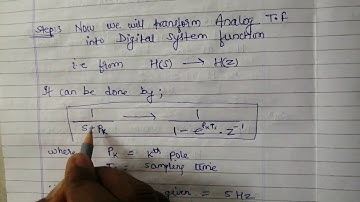 Step:3 Now we will transform Analog T.F
into Digital System function
i.e from H(s) → H(z)
It can be done by;
1/(s - Pk) → 1/(1 - e^(PkTs) · z^-1)
where Pk = kth pole
= sampling time
given = 5Hz